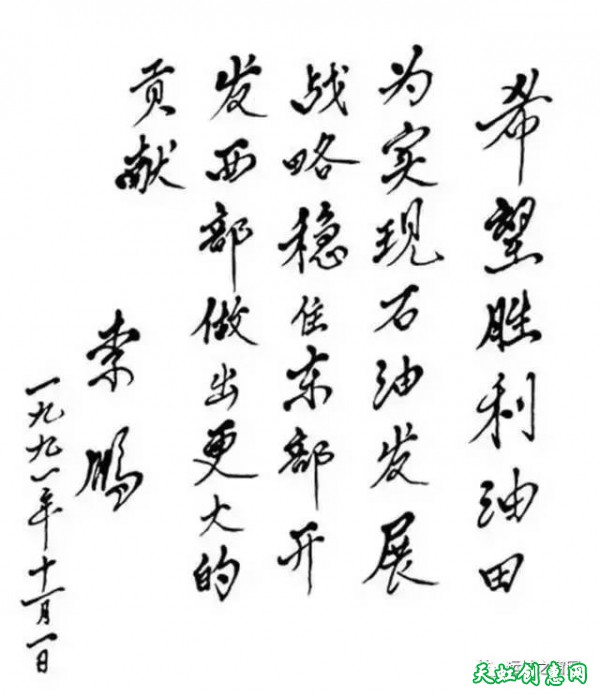 希望胜利油田
为实现石油发展
战略稳住东部开
发西部做出更大的
贡献
李鹏
一九九一年十一月一日
天虹创意网